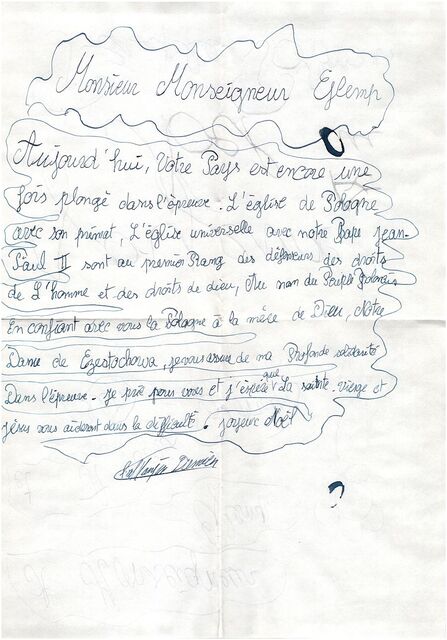 Monsieur Monseigneur Eglemp
Aujourd'hui, Votre Pays est encore une
fois plongé dans l'épreuve. L'église de Pologne
avec son primat, L'église universelle avec notre Pape Jean-
Paul II sont au premier Rang des défenseurs des droits
de L'homme et des droits de dieu, Au nom du Peuple Polonais
En confiant avec vous la Pologne à la mère de Dieu, Notre
Dame de Czestochowa, je vous assure de ma Profonde solidarité
Dans l'épreuve. Je prie pour vous et j'espère que La sainte vierge et
jésus vous aideront dans la difficulté. joyeux Noël